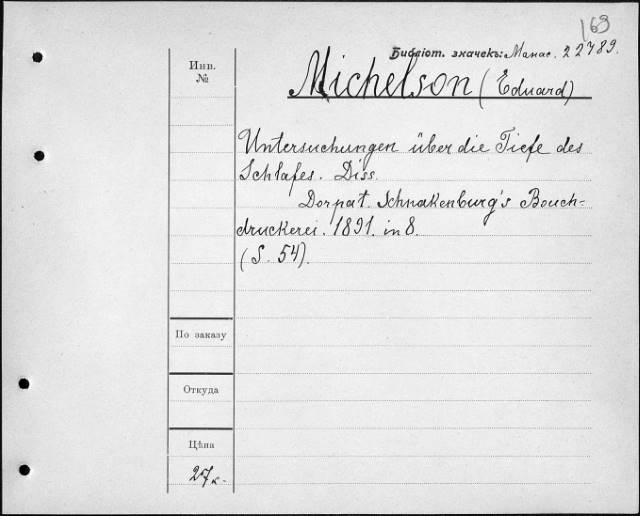 169
Библіот. значекъ: Манас. 22789.
Инв.
№
Michelson (Eduard)
Untersuchungen über die Tiefe des
Schlafes. Diss.
Dorpat. Schnakenburg's Bouch-
druckerei. 1891. in 8.
(S. 54).
По заказу
Откуда
Цѣна
27 к.-